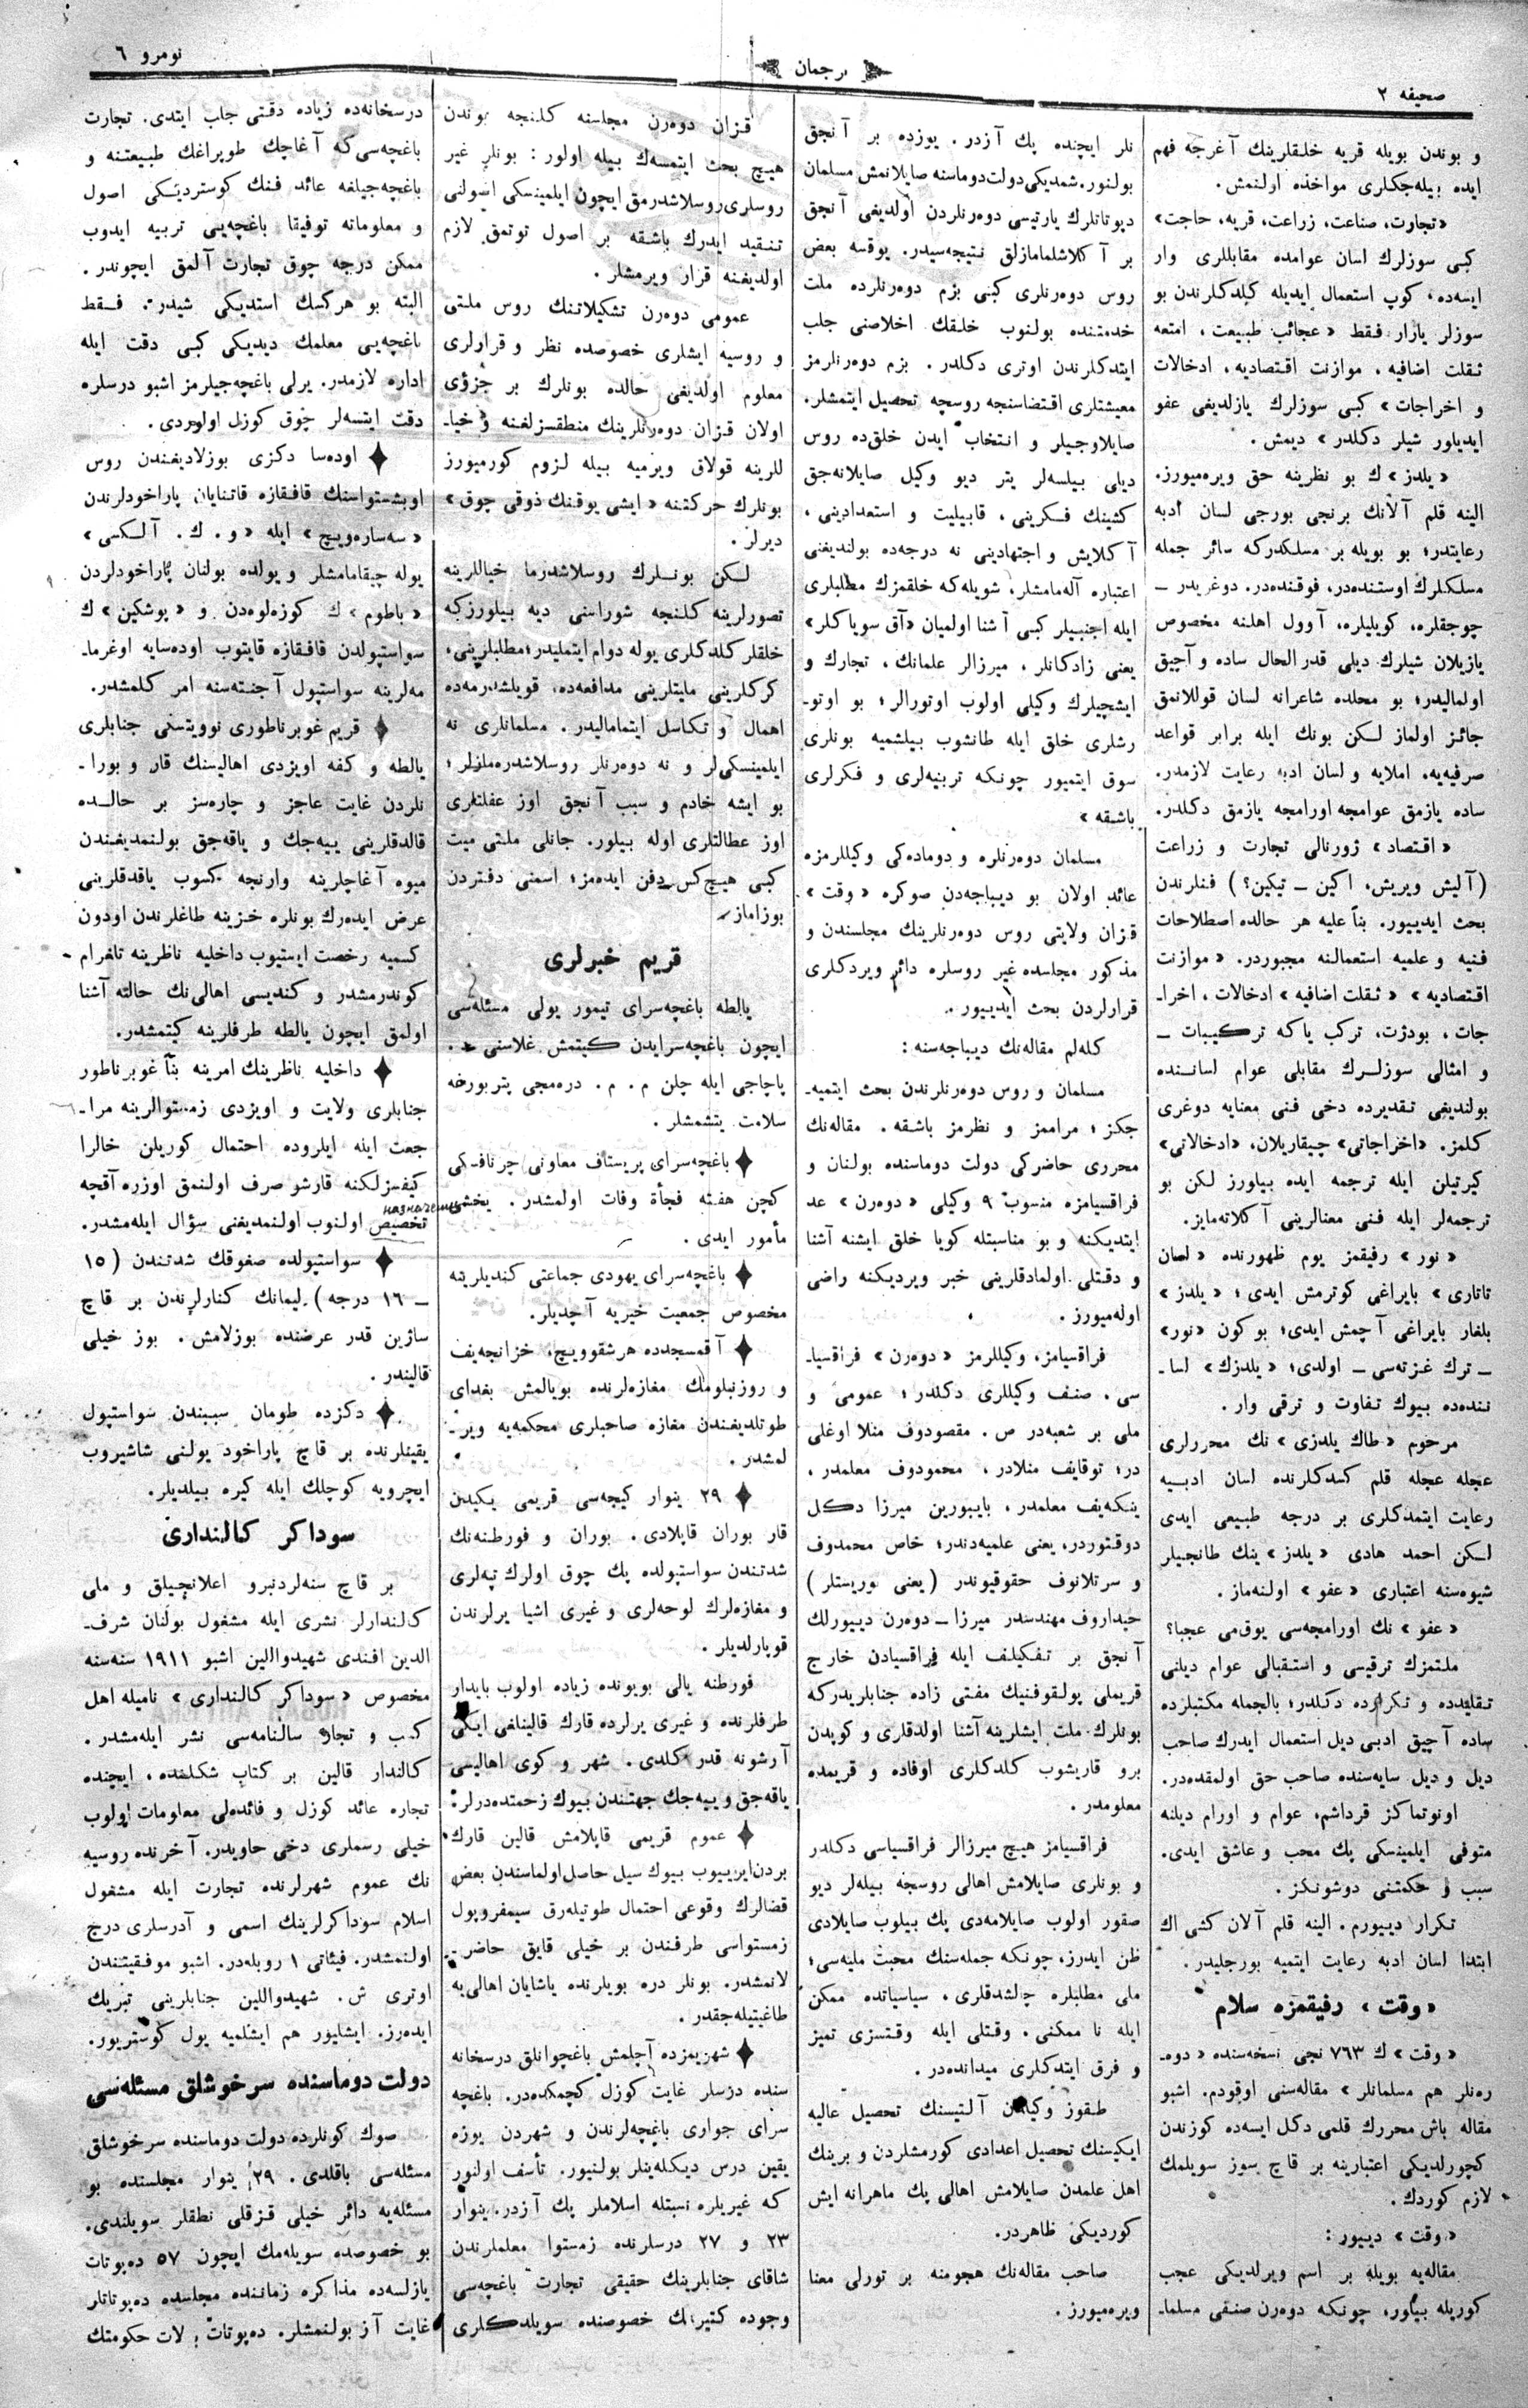 صحیفه ٢
ترجمان
نومرو ٦
و بوندن بویله قریه خلقلرینك آغرجه فهم
ایده بیله‌جکلری مواخذه اولنمش.
«تجارت، صناعت، زراعت، قریه، حاجت»
کبی سوزلرك لسان عوامده مقابللری وار
ایسه‌ده، کوپ استعمال ایدیله کلدکلرندن بو
سوزلر یارار فقط «عجائب طبیعت، امتعه
ثقلت اضافیه، موازنت اقتصادیه، ادخالات
و اخراجات» کبی سوزلرك یازلدیغی عفو
ایدیلور شیلر دکلدر» دیمش.
«یلدز»ك بو نظرینه حق ویره‌میورز.
الینه قلم آلانك برنجی بورجی لسان ادبه
رعایتدر؛ بو بویله بر مسلکدرکه سائر جمله
مسلکلرك اوستنده‌در، فوقنده‌در. دوغریدر ــ
چوجقلره، کویلیلره، آوول اهلنه مخصوص
یازیلان شیلرك دیلی قدر الحال ساده و آچیق
اولمالیدر؛ بو محلده شاعرانه لسان قوللانمق
جائز اولماز لکن بونك ایله برابر قواعد
صرفیه‌یه، املایه و لسان ادبه رعایت لازمدر.
ساده یازمق عوامجه اورامجه یازمق دکلدر.
«اقتصاد» ژورنالی تجارت و زراعت
(آلیش ویریش، اکین ـ تیکین؟) فنلرندن
بحث ایدییور. بناً علیه هر حالده اصطلاحات
فنیه و علمیه استعمالنه مجبوردر. «موازنت
اقتصادیه» «ثقلت اضافیه» ادخالات، اخرا-
جات، بودژت، ترکب یاکه ترکیبات ــ
و امثالی سوزلرك مقابلی عوام لسانــنده
بولندیغی تقدیرده دخی فنی معنایه دوغری
کلمز. «اخراجاتی» چیقاریلان، «ادخالاتی»
کیرتیلن ایله ترجمه ایده بیلورز لکن بو
ترجمه‌لر ایله فنی معنالرینی آکلاته‌مایز.
«نور» رفیقمز یوم ظهورنده «لسان
تاتاری» بایراغی کوترمش ایدی؛ «یلدز»
بلغار بایراغی آچمش ایدی؛ بو کون «نور»
ــ ترك غزته‌سی ــ اولدی؛ «یلدزك» لسا-
ننده‌ده بیوك تفاوت و ترقی وار.
مرحوم «طاك یلدزی» نك محررلری
عجله عجله قلم کسدکلرنده لسان ادبــیه
رعایت ایتمدکلری بر درجه طبیعی ایدی
لکن احمد هادی «یلدز»ینك طانجیلر
شیوه‌سنه اعتباری «عفو» اولنه‌ماز.
«عفو» نك اورامجه‌سی یوق‌می عجبا؟
ملتمزك ترقیسی و استقبالی عوام دیلنی
تقلیدده و تکرارده دکلدر؛ بالجمله مکتبلرده
ساده آچیق ادبی دیل استعمال ایدرك صاحب
دیل و دیل سایه‌سنده صاحب حق اولمقده‌در.
اونوتماکز قرداشم، عوام و اورام دیلنه
متوفی ایلمینسکی پك محب و عاشق ایدی.
سبب و حکمتنی دوشونکز.
تکرار دییورم. الینه قلم آلان کشی اك
ابتدا لسان ادبه رعایت ایتمیه بورجلیدر.
«وقت» رفیقمزه سلام
«وقت»ك ٧٦٣ نجی نسخه‌سنده «دوه-
ره‌نلر هم مسلمانلر» مقاله‌سنی اوقودم. اشبو
مقاله باش محررك قلمی دکل ایسه‌ده کوزندن
کچورلدیکی اعتبارینه بر قاچ سوز سویلمك
لازم کوردك.
«وقت» دییور:
مقاله‌یه بویله بر اسم ویرلدیکی عجب
کوریله بیلور، چونکه دوه‌رن صنفی مسلما-
نلر ایچنده پك آزدر. یوزده بر آنجق
بولنور. شمدیکی دولت دوماسنه صایلانمش مسلمان
دپوتاتلرك یارتیسی دوه‌رنلردن اولدیغی آنجق
بر آکلاشلمامازلق نتیجه‌سیدر. یوقسه بعض
روس دوه‌رنلری کبی بزم دوه‌رنلرده ملت
خدمتنده بولنوب خلقك اخلاصنی جلب
ایتدکلرندن اوتری دکلدر. بزم دوه‌رنلرمز
معیشتلری اقتضاسنجه روسچه تحصیل ایتمشلر.
صایلاوجیلر و انتخاب ایدن خلق‌ده روس
دیلی بیلسه‌لر یتر دیو وکیل صایلانه‌جق
کشینك فکرینی، قابلیت و استعدادینی،
آکلایش و اجتهادینی نه درجه‌ده بولندیغنی
اعتباره آله‌مامشلر. شویله‌که خلقمزك مطلبلری
ایله اجنبیلر کبی آشنا اولمیان «آق سویاکلر»
یعنی زادکانلر، میرزالر علمانك، تجارك و
ایشچیلرك وکیلی اولوب اوتورالر؛ بو اوتو-
رشلری خلق ایله طانشوب بیلشمیه بونلری
سوق ایتمیور چونکه تربیه‌لری و فکرلری
باشقه»
مسلمان دوه‌رنلره و دوماده‌کی وکیللرمزه
عائد اولان بو دیباجه‌دن صوکره «وقت»
قزان ولایتی روس دوه‌رنلرینك مجلسندن و
مذکور مجلسده غیر روسلره دائر ویردکلری
قرارلردن بحث ایدییور.
کله‌لم مقاله‌نك دیباجه‌سنه:
مسلمان و روس دوه‌رنلرندن بحث ایتمیه-
جکز؛ مراممز و نظرمز باشقه. مقاله‌نك
محرری حاضرکی دولت دوماسنده بولنان و
فراقسیامزه منسوب ٩ وکیلی «دوه‌رن» عد
ایتدیکنه و بو مناسبتله کویا خلق ایشنه آشنا
و دقتلی اولمادقلرینی خبر ویردیکنه راضی
اوله‌میورز.
فراقسیامز، وکیللرمز «دوه‌رن» فراقسیا-
سی. صنف وکیللری دکلدر؛ عمومی و
ملی بر شعبه‌در ص. مقصودوف منلا اوغلی
در؛ توقایف منلادر، محمودوف معلمدر،
ینکه‌یف معلمدر، بایبورین میرزا دکل
دوقتوردر، یعنی علمیه‌دندر؛ خاص محمدوف
و سرتلانوف حقوقیوندر (یعنی یوریستلر)
حیداروف مهندسدر میرزا ــ دوه‌رن دییورلك
آنجق بر تفکیلف ایله فراقسیادن خارج
قریملی پولقوفنیك مفتی زاده جنابلریدرکه
بونلرك ملت ایشلرینه آشنا اولدقلری و کوپدن
برو قاریشوب کلدکلری اوفاده و قریمده
معلومدر.
فراقسیامز هیچ میرزالر فراقسیاسی دکلدر
و بونلری صایلامش اهالی روسجه بیله‌لر دیو
صقور اولوب صایلامه‌دی پك بیلوب صایلادی
ظن ایدرز، چونکه جمله‌سنك محبت ملیه‌سی؛
ملی مطلبلره چالشدقلری، سیاسیاتده ممکن
ایله نا ممکنی. وقتلی ایله وقتسزی تمیز
و فرق ایتدکلری میدانده‌در.
طقوز وکیلدن آلتیسنك تحصیل عالیه
ایکیسنك تحصیل اعدادی کورمشلردن و برینك
اهل علمدن صایلامش اهالی پك ماهرانه ایش
کوردیکی ظاهردر.
صاحب مقاله‌نك هجومنه بر تورلی معنا
ویره‌میورز.
قزان دوه‌رن مجلسنه کلنجه بوندن
هیچ بحث ایتمسه‌ك بیله اولور: بونلر غیر
روسلری روسلاشدرمق ایچون ایلمینسکی اصولنی
تنقید ایدرك باشقه بر اصول توتمق لازم
اولدیغنه قرار ویرمشلر.
عمومی دوه‌رن تشکیلاتنك روس ملتی
و روسیه ایشلری خصوصده نظر و قرارلری
معلوم اولدیغی حالده بونلرك بر جزؤی
اولان قزان دوه‌رنلرینك منطقسزلغنه و خیا-
للرینه قولاق ویرمیه بیله لزوم کورمیورز
بونلرك حرکتنه «ایشی یوقنك ذوقی چوق»
دیرلر.
لکن بونلرك روسلاشدرما خیاللرینه
تصورلرینه کلنجه شوراسنی دیه بیلورزکه
خلقلر کلدکلری یوله دوام ایتملیدر؛ مطلبلرینی،
کرکلرینی ملیتلرینی مدافعه‌ده، قویلشدرمه‌ده
اهمال و تکاسل ایتمامالیدر. مسلمانلری نه
ایلمینسکی‌لر و نه دوه‌رنلر روسلاشدره‌مازلر؛
بو ایشه خادم و سبب آنجق اوز غفلتلری
اوز عطالتلری اوله بیلور. جانلی ملتی میت
کبی هیچ کس دفن ایده‌مز؛ اسمنی دفتردن
بوزاماز.
قریم خبرلری
یالطه باغچه‌سرای تیمور یولی مسئله‌سی
ایچون باغچه‌سرایدن کیتمش غلاسنی م.
پاچاجی ایله چلن م. م. دره‌مجی پتربورخه
سلامت یتشمشلر.
باغچه‌سرای پریستاف معاونی چرنافسکی
کچن هفته فجأة وفات اولمشدر. یخشی
مأمور ایدی.
باغچه‌سرای یهودی جماعتی کندیلرینه
مخصوص جمعیت خیریه آچدیلر.
آقمسجدده هرشقوویچ، خزانجه‌یف
و روزنبلومك مغازه‌لرنده بویالمش بغدای
طوتلدیغندن مغازه صاحبلری محکمه‌یه ویر-
لمشدر.
٢٩ ینوار کیجه‌سی قریمی یکیدن
قار بوران قاپلادی. بوران و فورطنه‌نك
شدتندن سواستپولده پك چوق اولرك تپه‌لری
و مغازه‌لرك لوحه‌لری و غیری اشیا یرلرندن
قوپارلدیلر.
فورطنه یالی بویونده زیاده اولوب بایدار
طرفلرنده و غیری یرلرده قارك قالینلغی ایکی
آرشونه قدر کلدی. شهر و کوی اهالیسی
یاقه‌جق و ییه‌جك جهتندن بیوك زحمتده‌درلر.
عموم قریمی قاپلامش قالین قارك
بردن ایرییوب بیوك سیل حاصل اولماسندن بعض
قضالرك وقوعی احتمال طوتیله‌رق سیمفروپول
زمستواسی طرفندن بر خیلی قایق حاضر-
لانمشدر. بونلر دره بویلرنده یاشایان اهالی‌یه
طاغیتیله‌جقدر.
شهریمزده آچلمش باغچوانلق درسخانه
سنده درسلر غایت کوزل کچمکده‌در. باغچه
سرای جواری باغچه‌لرندن و شهردن یوزه
یقین درس دیکله‌ینلر بولنیور. تأسف اولنور
که غیریلره نسبتله اسلاملر پك آزدر. ینوار
٢٣ و ٢٧ درسلرنده زمستوا معلملرندن
شاقای جنابلرینك حقیقی تجارت باغچه‌سی
وجوده کتیرمك خصوصنده سویلدکلری
درسخانه‌ده زیاده دقتی جلب ایتدی. تجارت
باغچه‌سی‌که آغاچك طوپراغك طبیعتنه و
باغچه‌جیلغه عائد فنك کوستردیکی اصول
و معلوماته توفیقا باغچه‌یی تربیه ایدوب
ممکن درجه چوق تجارت آلمق ایچوندر.
البته بو هرکسك استدیکی شیدر. فقط
باغچه‌یی معلمك دیدیکی کبی دقت ایله
اداره لازمدر. یرلی باغچه‌جیلرمز اشبو درسلره
دقت ایتسه‌لر چوق کوزل اولوردی.
اوده‌سا دکزی بوزلادیغندن روس
اوبشتواسنك قافقازه قاتنایان پاراخودلرندن
«سه‌ساره‌ویچ» ایله «و. ك. آلکسی»
یوله چیقامامشلر و یولده بولنان پاراخودلردن
«باطوم»ك کوزه‌لوه‌دن و «پوشکین»ك
سواستپولدن قافقازه قایتوب اوده‌سایه اوغرما-
مه‌لرینه سواستپول آجنته‌سنه امر کلمشدر.
قریم غوبرناطوری نوویتسقی جنابلری
یالطه و کفه اویزدی اهالیسنك قار و بورا-
نلردن غایت عاجز و چاره‌سز بر حالــده
قالدقلرینی ییه‌جك و یاقه‌جق بولنمدیغندن
میوه آغاجلرینه وارنجه کسوب یاقدقلرینی
عرض ایده‌رك بونلره خزینه طاغلرندن اودون
کسمیه رخصت ایستیوب داخلیه ناظرینه تلغرام
کوندرمشدر و کندیسی اهالی‌نك حالنه آشنا
اولمق ایچون یالطه طرفلرینه کیتمشدر.
داخلیه ناظرینك امرینه بناً غوبرناطور
جنابلری ولایت و اویزدی زمستوالرینه مرا-
جعت ایله ایلروده احتمال کوریلن خالرا
کیفسزلکنه قارشو صرف اولنمق اوزره آقچه
تخصیص اولنوب اولنمدیغنی سؤال ایله‌مشدر.
سواستپولده صغوقك شدتندن (١٥
ــ ١٦ درجه) لیمانك کنارلرندن بر قاچ
ساژین قدر عرضنده بوزلامش. بوز خیلی
قالیندر.
دکزده طومان سببندن سواستپول
یقینلرنده بر قاچ پاراخود یولنی شاشیروب
ایچرویه کوچلك ایله کیره بیلدیلر.
سوداکر کالنداری
بر قاچ سنه‌لردنبرو اعلانجیلق و ملی
کالندارلر نشری ایله مشغول بولنان شرف-
الدین افندی شهیدواللین اشبو ١٩١١ سنه‌سنه
مخصوص «سوداکر کالنداری» نامیله اهل
کسب و تجار سالنامه‌سی نشر ایله‌مشدر.
کالندار قالین بر کتاب شکلنده، ایچنده
تجاره عائد کوزل و فائده‌لی معلومات اولوب
خیلی رسملری دخی حاویدر. آخرنده روسیه
نك عموم شهرلرنده تجارت ایله مشغول
اسلام سوداکرلرینك اسمی و آدرسلری درج
اولنمشدر. فیئاتی ١ روبله‌در. اشبو موفقیتندن
اوتری ش. شهیدواللین جنابلرینی تبریك
ایده‌رز. ایشلیور هم ایشلمیه یول کوستریور.
دولت دوماسنده سرخوشلق مسئله‌سی
صوك کونلرده دولت دوماسنده سرخوشلق
مسئله‌سی باقلدی. ٢٩ ینوار مجلسنده بو
مسئله‌یه دائر خیلی قزقلی نطقلر سویلندی.
بو خصوصده سویله‌مك ایچون ٥٧ ده‌پوتات
یازلسه‌ده مذاکره زماننده مجلسده ده‌پوتاتلر
غایت آز بولنمشلر. ده‌پوتات لات حکومتك